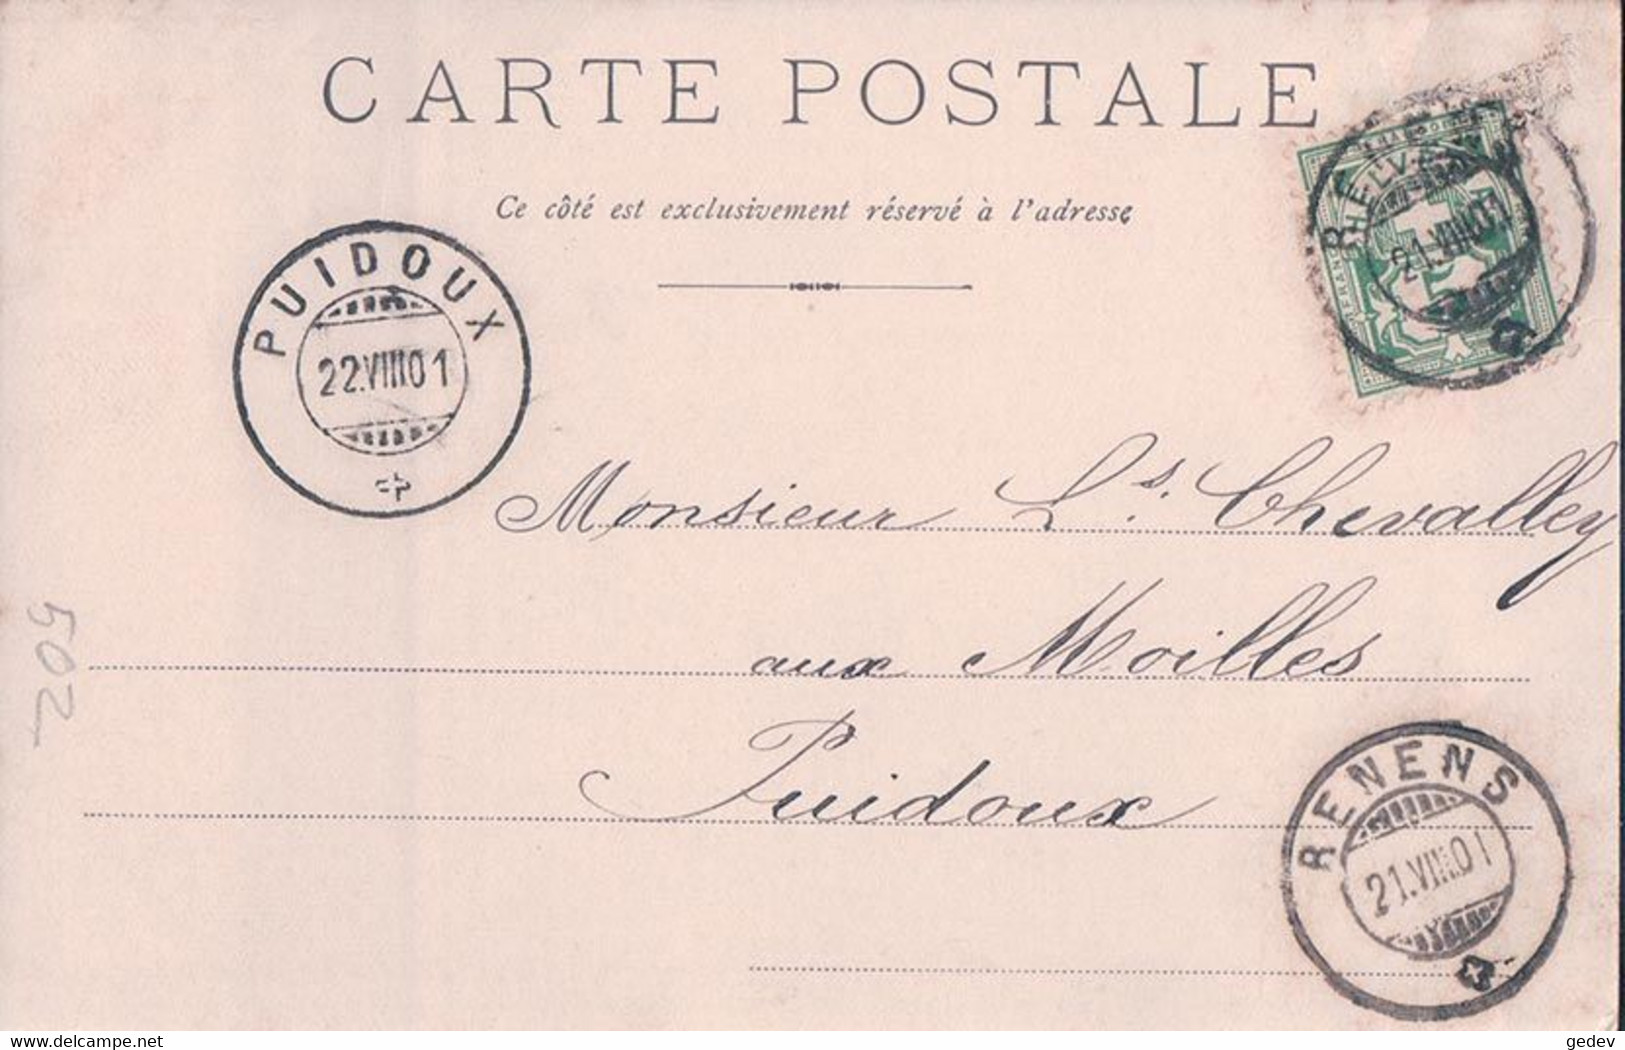 CARTE POSTALE
Ce côté est exclusivement réservé à l'adresse
PUIDOUX
22.VIII.01
HELVETIA
FRANCO
21.VIII.01
Monsieur Ls. Chevalley
aux Moilles
Puidoux
502
RENENS
21.VIII.01
www.delcampe.net
gedev